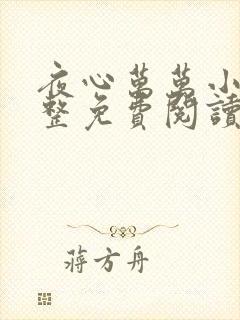 夜心萬萬小
整免費閱讀
蔣方舟